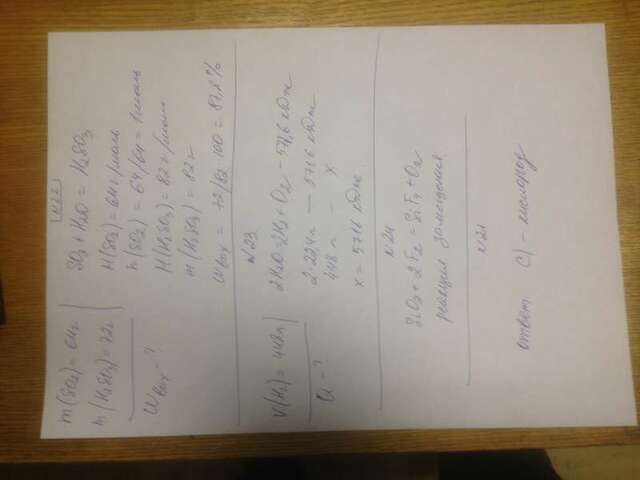 N22
m(SO2) = 64г
m(H2SO3) = 72г
Wвых - ?
SO2 + H2O = H2SO3
M(SO2) = 64 г/моль
n(SO2) = 64/64 = 1 моль
M(H2SO3) = 82 г/моль
m(H2SO3) = 82г
Wвых = 72/82 100 = 87,8%
N23
V(H2) = 448л
Q - ?
2H2O = 2H2 + O2 - 571,6 кДж
2·22,4л — 571,6 кДж
448л - x
x = 5716 кДж
N24
SiO2 + 2F2 = SiF4 + O2
реакция замещения
N21
ответ C) - кислород